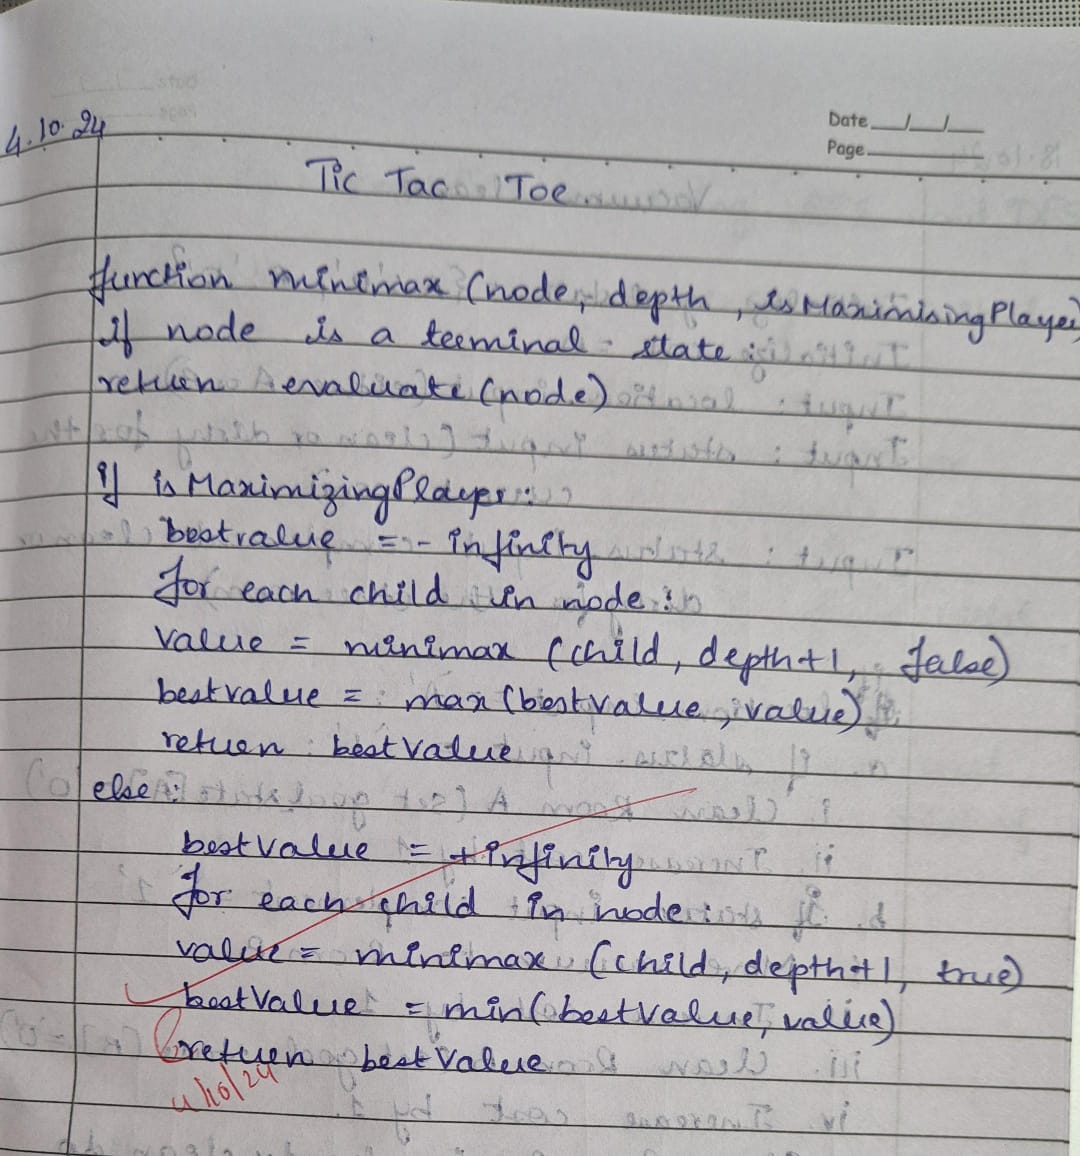 4.10.24
Date __/__/__
Page
Tic Tac Toe
function minimax (node, depth, isMaximisingPlayer)
if node is a terminal state :
return evaluate (node)
if is MaximizingPlayer :
bestvalue = - infinity
for each child in node :
value = minimax (child, depth+1, false)
bestvalue = max (bestvalue, value)
return bestvalue
else :
bestvalue = +infinity
for each child in node :
value = minimax (child, depth+1, true)
bestvalue = min(bestvalue, value)
return bestvalue
4/10/24